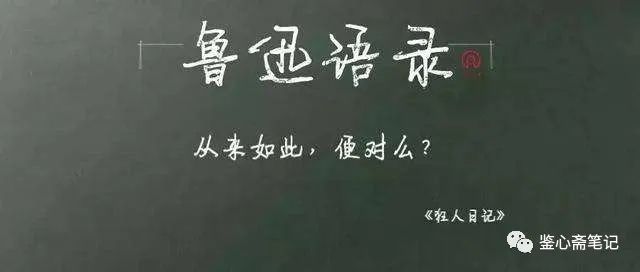 鲁迅语录
从来如此，便对么？
《狂人日记》
鉴心斋笔记